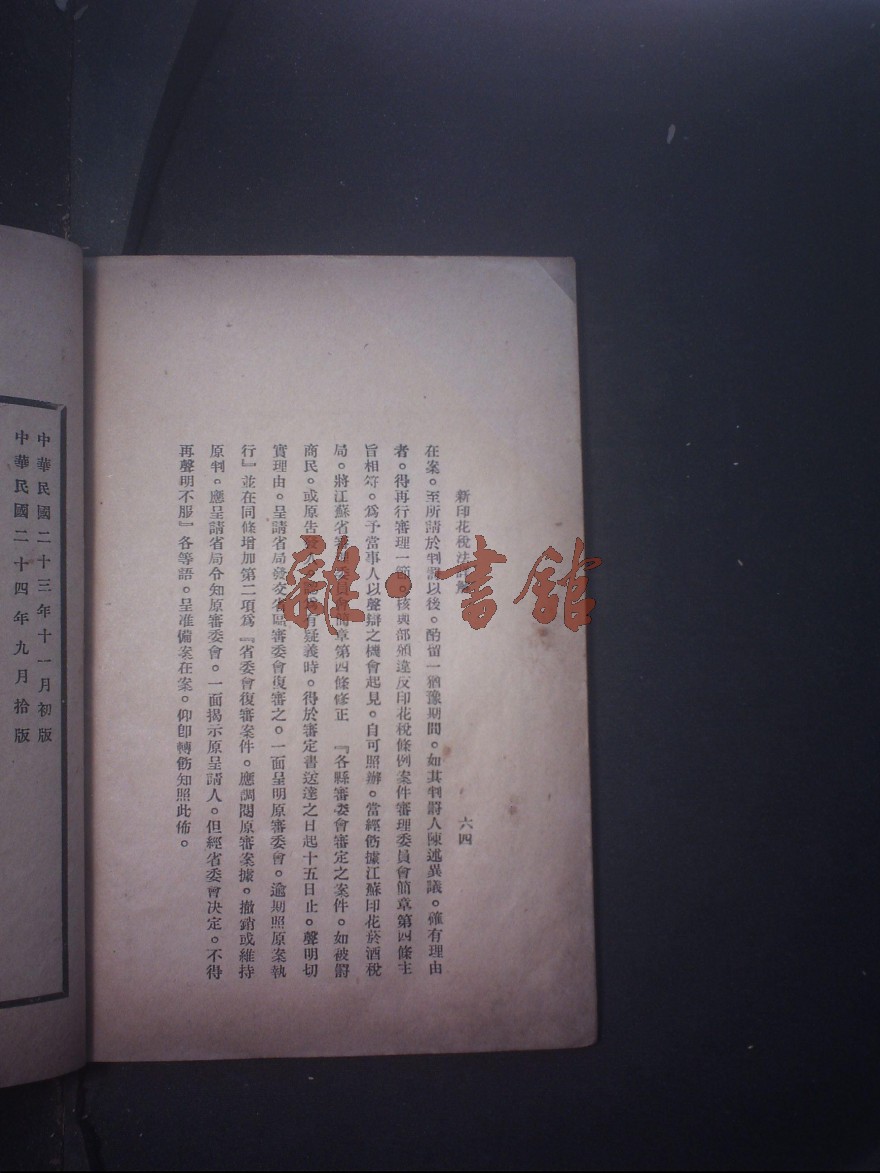 新印花稅法詳解
六四
在案。至所請於判罰以後。酌留一猶豫期間。如其判罰人陳述異議。確有理由
者。得再行審理一節。核與部頒違反印花稅條例案件審理委員會簡章第四條主
旨相符。爲予當事人以聲辯之機會起見。自可照辦。當經飭據江蘇印花菸酒稅
局。將江蘇省審理委員會簡章第四條修正 『各縣審委會審定之案件。如被罰
商民。或原告發人認爲有疑義時。得於審定書送達之日起十五日止。聲明切
實理由。呈請省局發交省區審委會復審之。一面呈明原審委會。逾期照原案執
行』並在同條增加第二項爲『省委會復審案件。應調閱原審案據。撤銷或維持
原判。應呈請省局令知原審委會。一面揭示原呈請人。但經省委會決定。不得
再聲明不服』各等語。呈准備案在案。仰卽轉飭知照此佈。
中華民國二十三年十一月初版
中華民國二十四年九月拾版
雜·書館